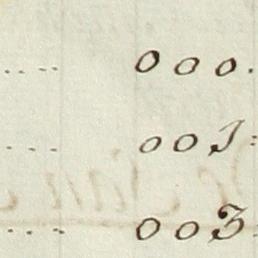 .... 000.
.... 001:
.... 003: